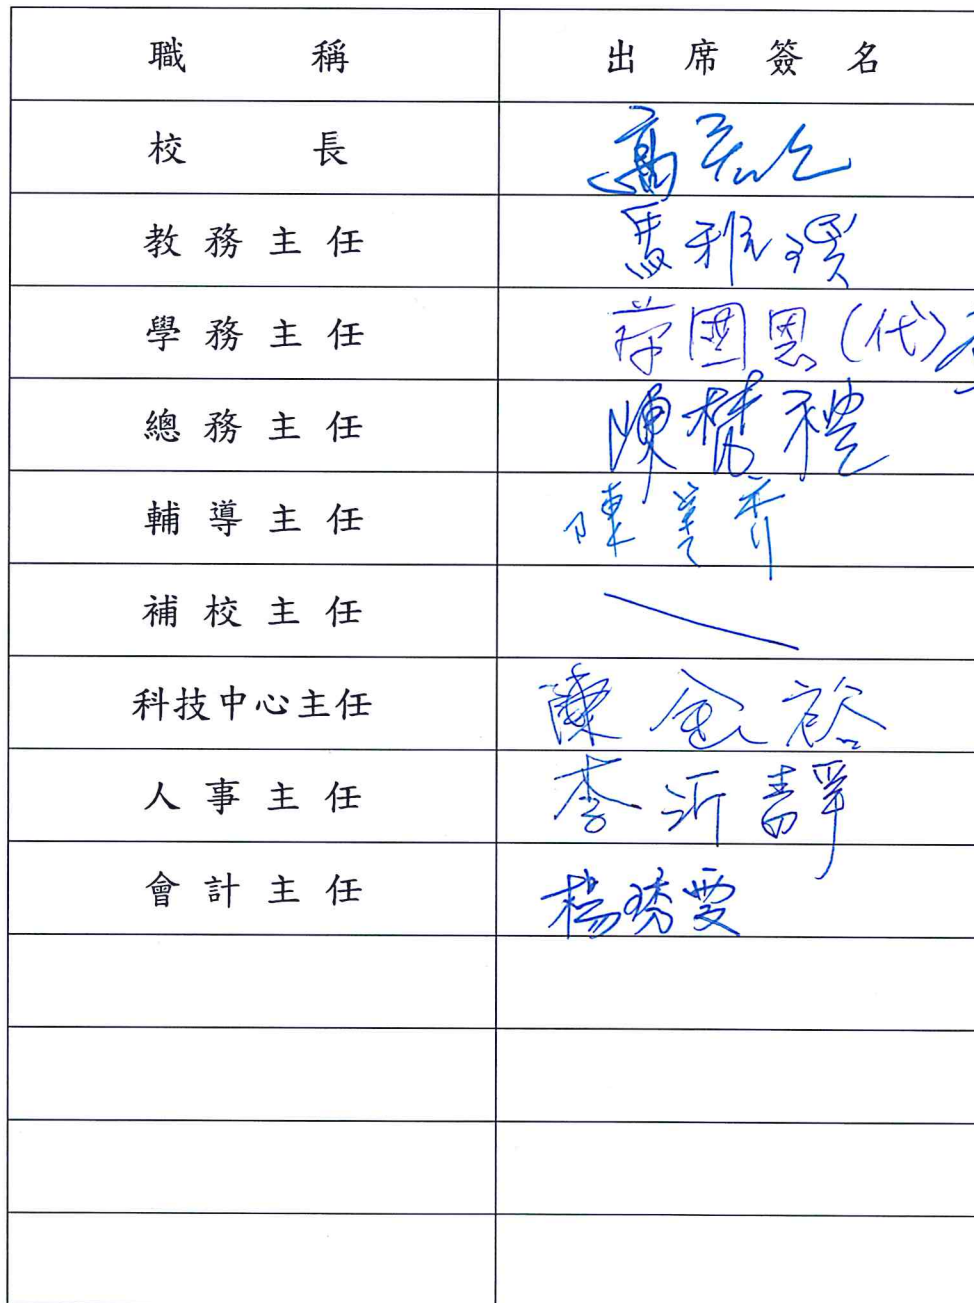 職稱 出席簽名
校長 高
教務主任 馬雅瑛
學務主任 國恩(代)
總務主任 陳 禮
輔導主任 陳美齊
補校主任
科技中心主任 陳金裕
人事主任 李沂靜
會計主任 楊琇雯